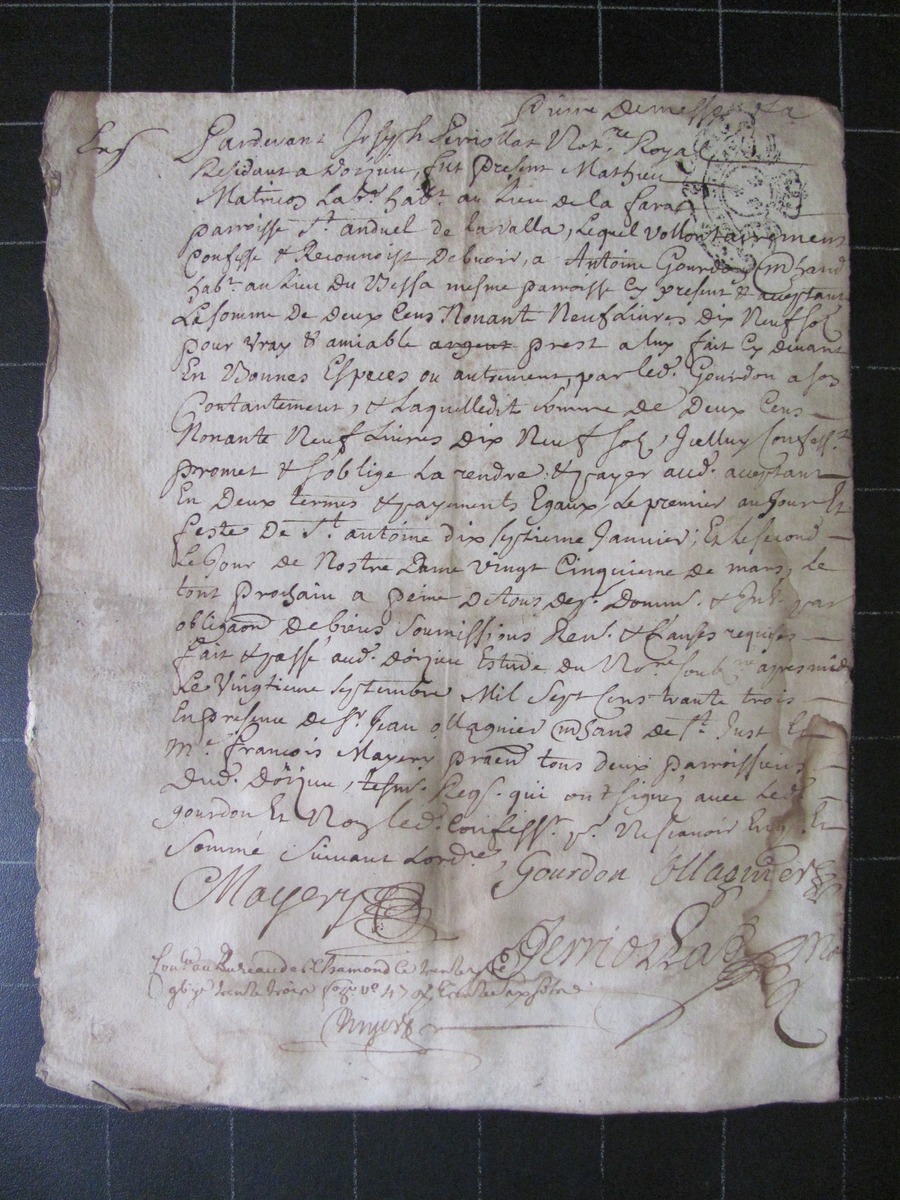 Pardevant Joseph Perriollat Not.re Royal
Residant a Dorjeu, fut present Mathieu
Matricos Lab.r hab.t au Lieu de la fara
parroisse S.t anduel de lavalla, Lequel vollontairement
Confesse & Reconnoist Debvoir, a Antoine Gourdon mhand
hab.t au Lieu du Bessa mesme parroisse Cy present & acceptant
La somme De Deux Cens Nonante Neuf Livres Dix Neuf sol
pour vray & amiable argent prest a luy fait Cy devant
En Bonnes Especes ou autrement, par led.t Gourdon a son
Contantement, & Laquelledit somme De Deux Cens
Nonante Neuf Livres Dix Neuf sol, Jcelluy Confess.t
promet & soblige La rendre & payer aud. acceptant
En Deux termes & payements Egaux, Le premier au Jour Et
feste De S.t antoine dix septieme Janvier, Et le second
Le Jour de Nostre Dame vingt Cinquieme de mars, Le
tout prochain a peine De tous desp.s Domm.s & Int. par
obligaon De biens Soumissions Ren.s & Clauses requises
fait & passé aud. dorjeu Estude du No.re soub.ne apres midy
Le Vingtieme septembre Mil Sept Cens trante trois
En presence de s.r Jean ollagnier mhand de S.t Just Et
M.e francois Mayery praen tous deux parroissiens
Dud. Dorjeu, tesm. Reqs. qui ont signez avec Led.
gourdon Et Non led. Confess.t p.r Ne scavoir Enq. Et
Sommé Suivant Lord.e
Gourdon Ollagnier
Mayery
Perriollat
au Bureau de S.t Chamond le
trente trois